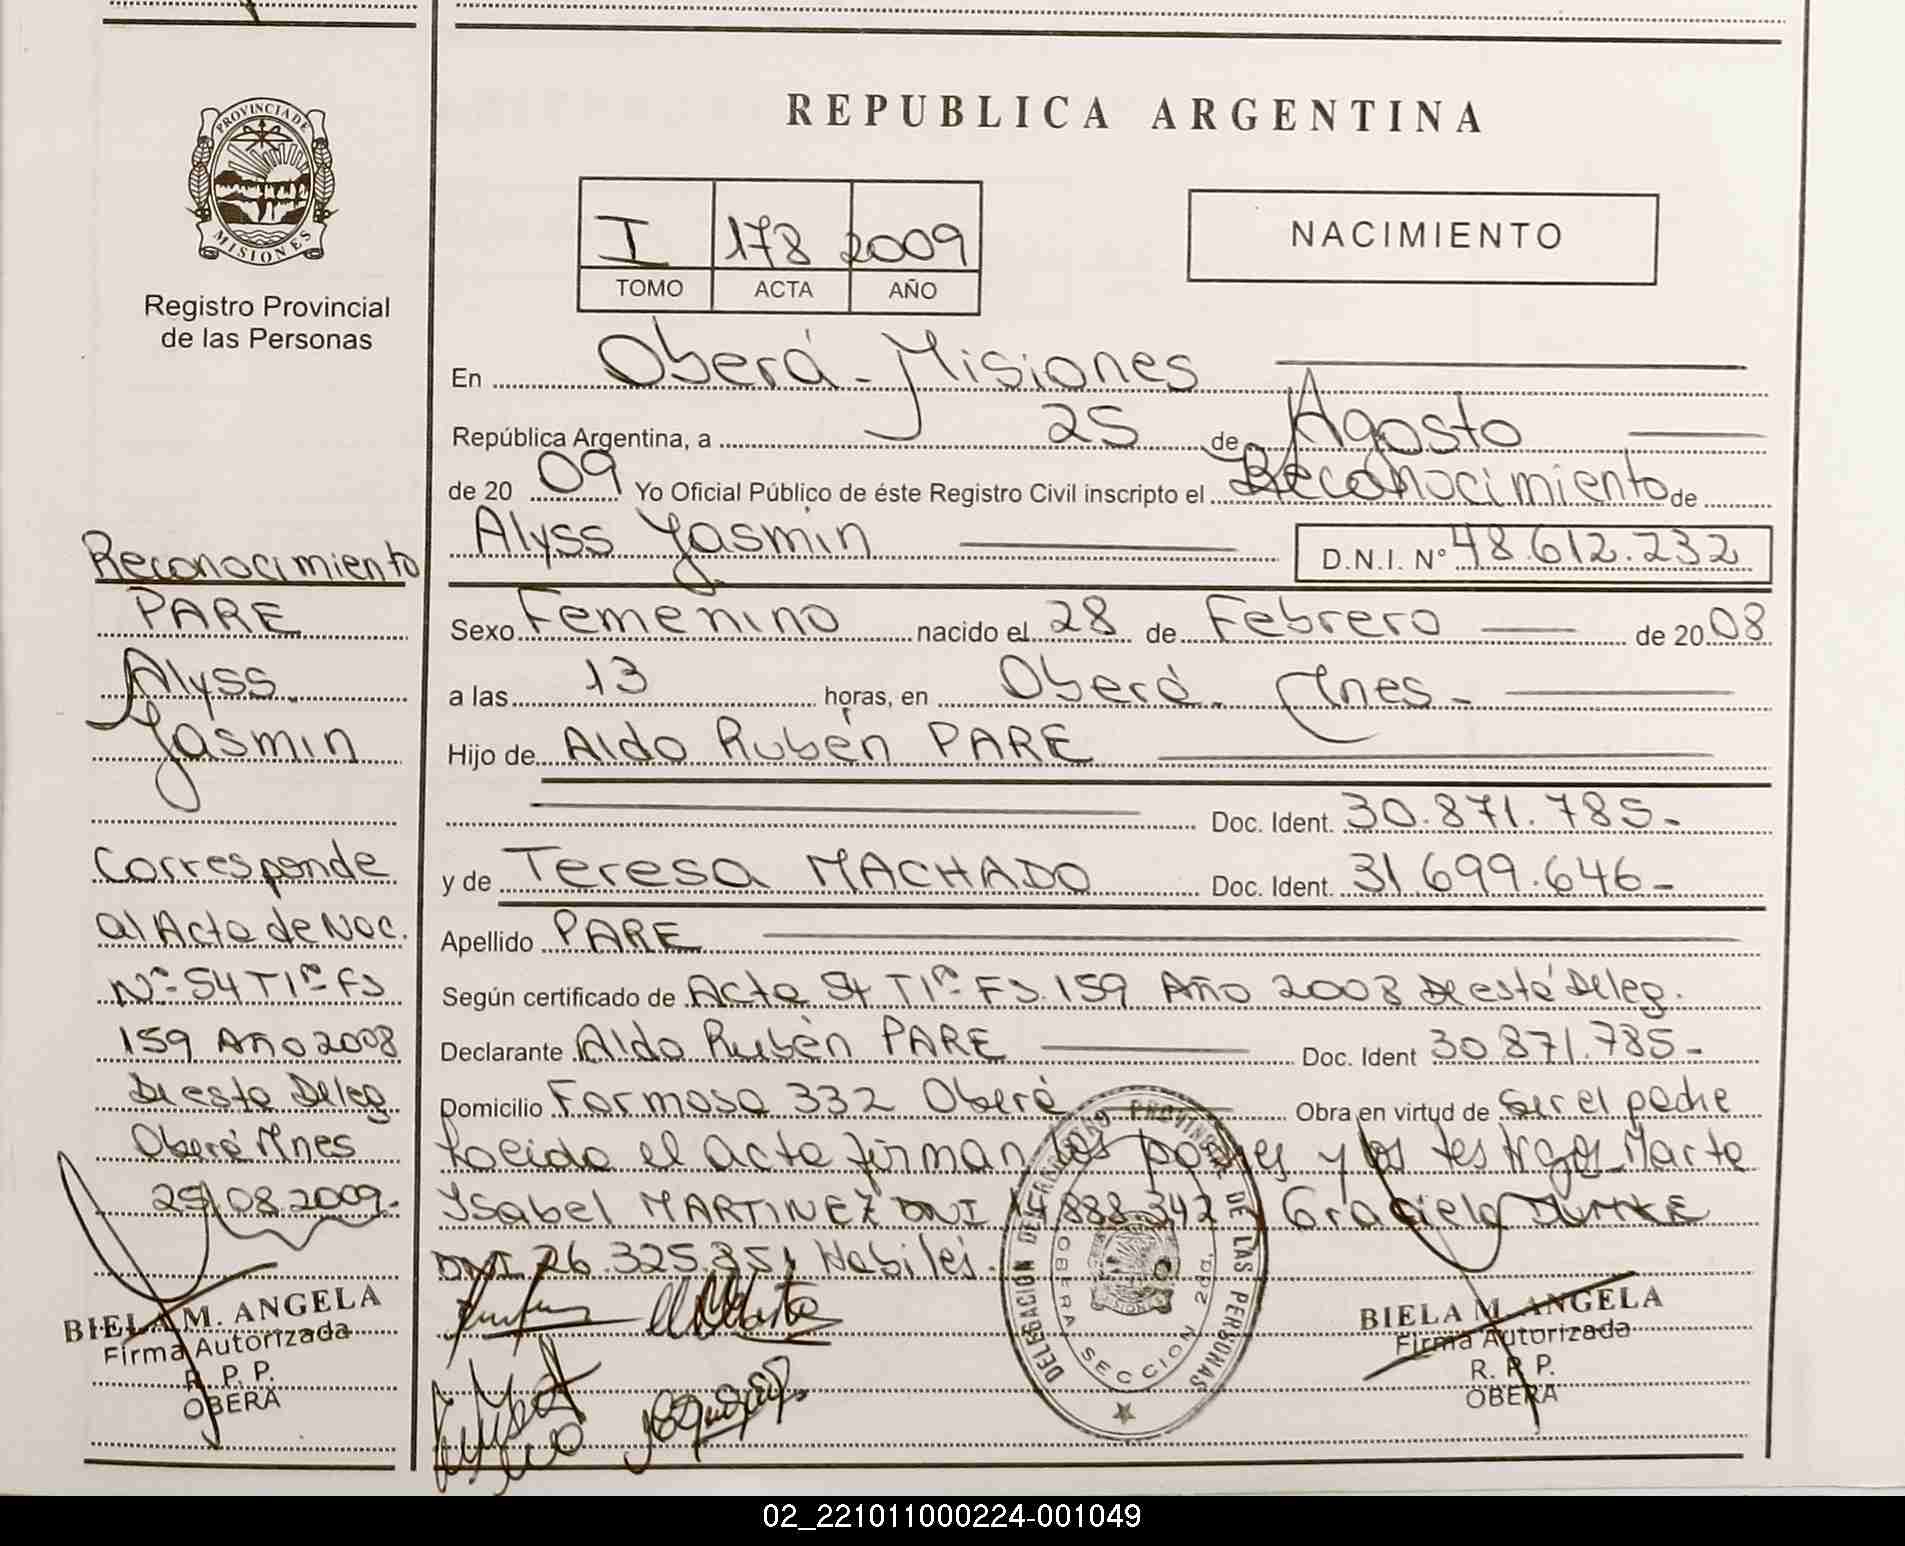 REPUBLICA ARGENTINA
PROVINCIA DE
MISIONES
Registro Provincial
de las Personas
I 178 2009
TOMO ACTA AÑO
NACIMIENTO
En Oberá - Misiones
República Argentina, a 25 de Agosto
de 20 09 Yo Oficial Público de éste Registro Civil inscripto el Reconocimiento de
Alyss Yasmin D.N.I. Nº 48.612.232
Sexo Femenino nacido el 28 de Febrero de 20 08
a las 13 horas, en Oberá. Mnes -
Hijo de Aldo Rubén PARE
Doc. Ident. 30.871.785-
y de Teresa MACHADO Doc. Ident. 31.699.646-
Apellido PARE
Según certificado de Acta 54 T1º Fs. 159 Año 2008 De está Deleg.
Declarante Aldo Rubén PARE Doc. Ident 30.871.785-
Domicilio Formosa 332 Oberá Obra en virtud de Ser el padre
Leida el acta firman los padres y los testigos Marta
Isabel MARTINEZ DNI 14.888.342 Graciela
DNI 26.325.351 Habiles.
Reconocimiento
PARE
Alyss
Yasmin
Corresponde
al Acta de Nac.
Nº 54 T1º Fs
159 Año 2008
De esta Deleg
Oberá Mnes
25.08.2009.
BIELA M. ANGELA
Firma Autorizada
R. P. P.
OBERA
DELEGACION DEL REGISTRO PROVINCIAL DE LAS PERSONAS
OBERA SECCION 2da.
BIELA M. ANGELA
Firma Autorizada
R. P. P.
OBERA
02_221011000224-001049